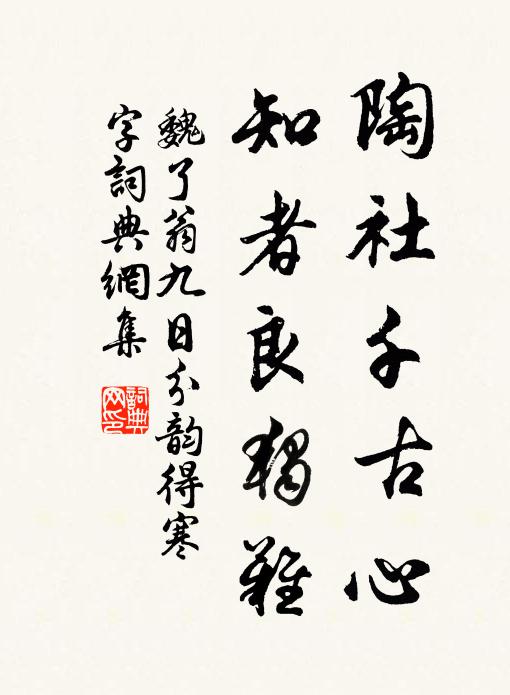 陶社千古心
知者良獨難
魏了翁九日分韵得寒
字詞典網集
詞典網印